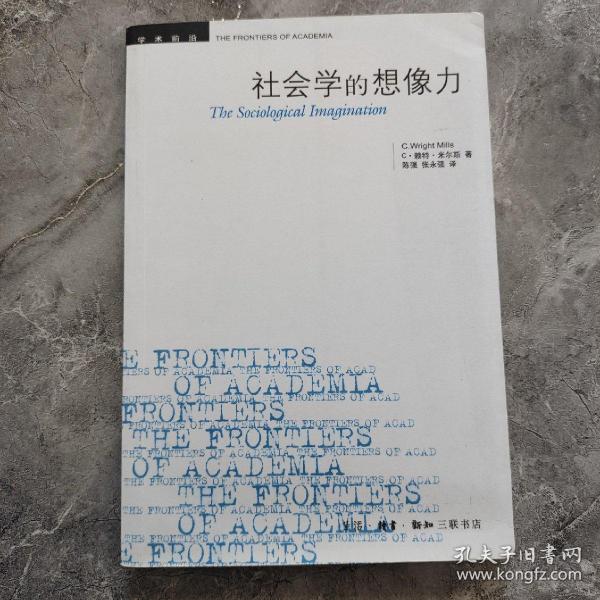 学术前沿 THE FRONTIERS OF ACADEMIA
社会学的想像力
The Sociological Imagination
C.Wright Mills
C·赖特·米尔斯 著
陈强 张永强 译
E FRONTIERS
IERS OF ACADEMIA THE FRONTIERS OF ACAD
OF ACADEMIA
RONTIERS OF ACADEMIA THE FRONTIERS OF ACAD
FRONTIERS
THE FRONTIERS
THE FRONTIERS OF ACADEMIA THE FRONTIERS OF ACAD
OF ACADEMIA
THE FRONTIERS OF ACADEMIA THE FRONTIERS OF ACAD
THE FRONTIERS
OF ACADEMI
生活·讀書·新知三联书店
孔夫子旧书网
www.kongfz.com